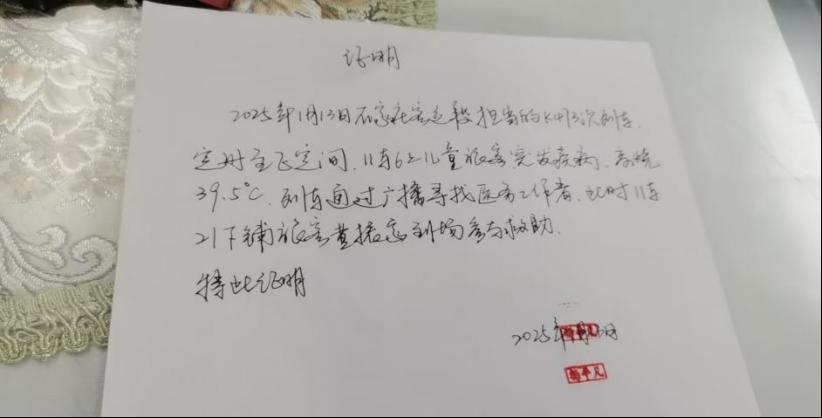 证明
2025年1月13日石家庄客运段担当的K413次列车,
定州至飞定间,11车6上儿童旅客突发疾病,高烧
39.5℃,列车通过广播寻找医务工作者,此时11车
21下铺旅客黄振到场参与救助.
特此证明
2025年1月 日
平凡